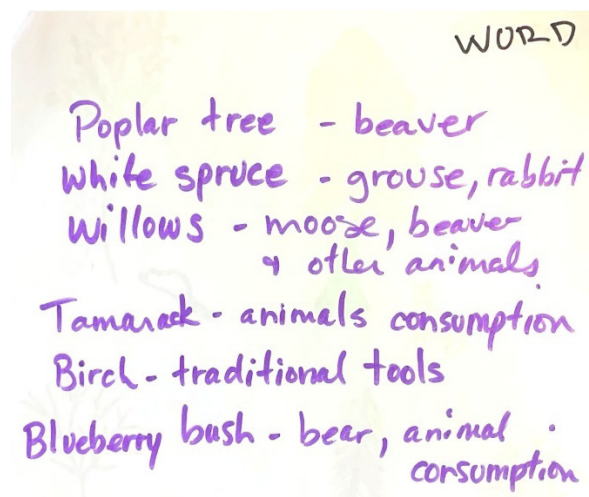 WORD
Poplar tree - beaver
White spruce - grouse, rabbit
Willows - moose, beaver
& other animals
Tamarack - animals consumption
Birch - traditional tools
Blueberry bush - bear, animal
consumption